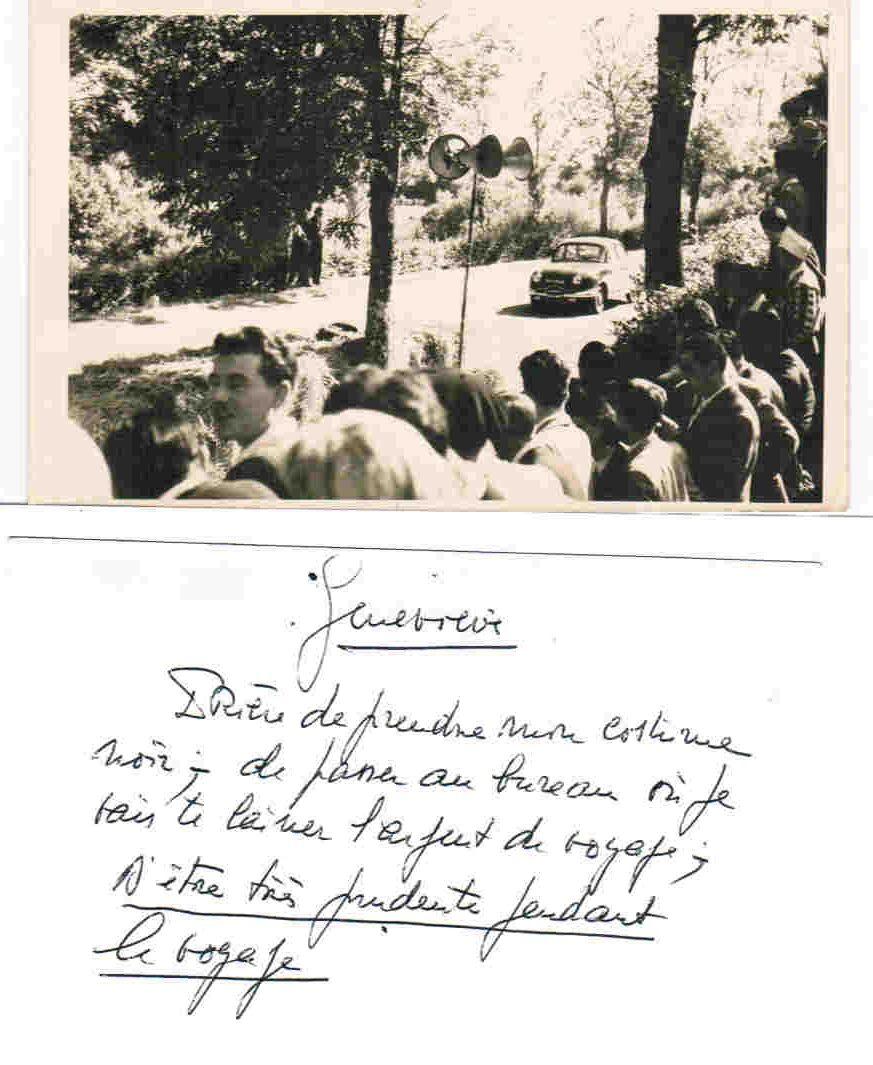 Geneviève
Prière de prendre mon costume
noir ; de passer au bureau où je
vais te laisser l'argent du voyage ;
D'être très prudente pendant
le voyage